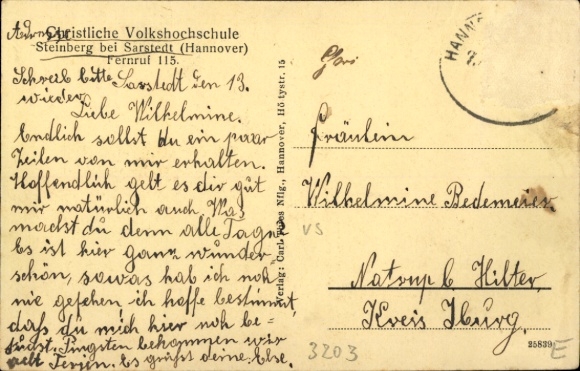 Adresse
Christliche Volkshochschule
Steinberg bei Sarstedt (Hannover)
Fernruf 115.
Schreib bitte wieder
Sarstedt den 13.
Liebe Wilhelmine.
Endlich sollst du ein paar
Zeilen von mir erhalten.
Hoffendlich geht es dir gut
mir natürlich auch. Was
machst du denn alle Tage.
Es ist hier ganz wunder-
schön, sowas hab ich noh
nie gesehen ich hoffe bestimmt,
daß du mich hier noh be-
suchst. Pfingsten bekommen wir
Ferien. Es grüßt deine Else.
Verlag: Carl Thies Nflg., Hannover,
HANN
Fräulein
Wilhelmine Bedemeier
VS
Natrup b Hilter,
Kreis Iburg.
25839
3203
E